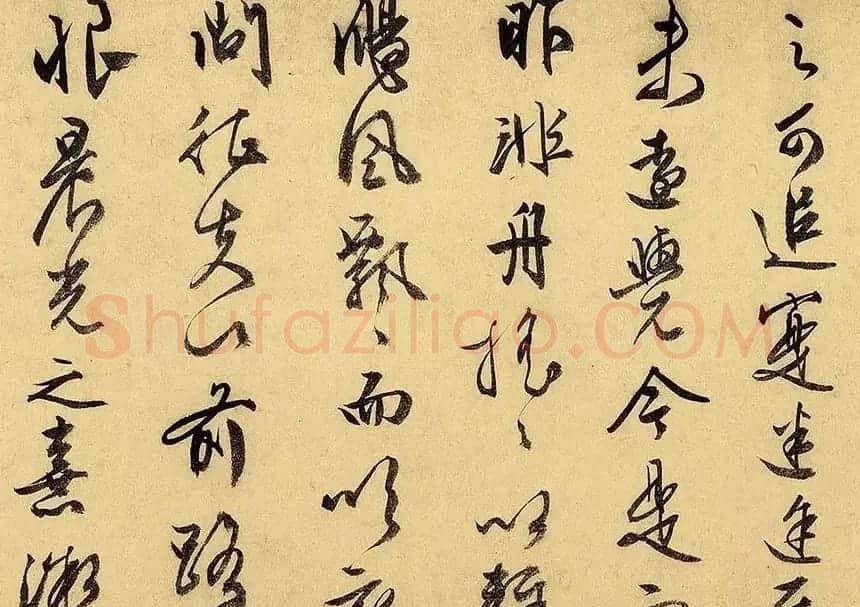 之可追寔迷途
未遠覺今是
昨非舟摇〻以輕
颺風飄〻而吹衣
問征夫以前路
恨晨光之熹微
Shufaziliao.COM